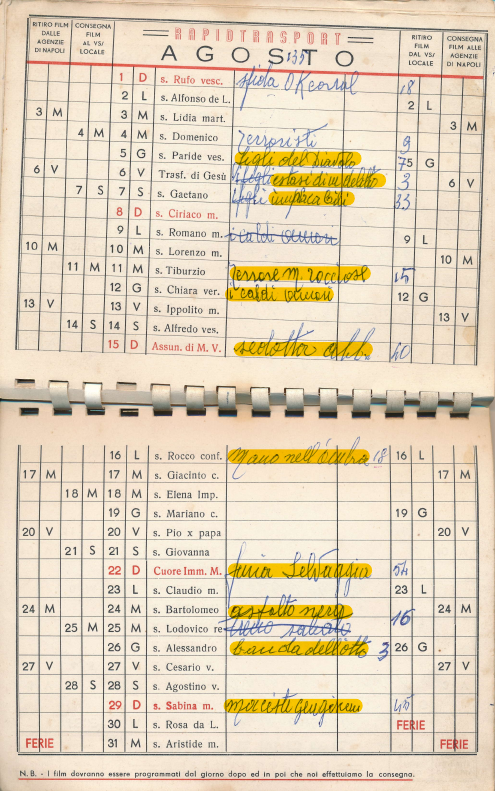 RITIRO FILM DALLE AGENZIE DI NAPOLI
CONSEGNA FILM AL VS/ LOCALE
RAPIDTRASPORT
AGOSTO
135
RITIRO FILM DAL VS/ LOCALE
CONSEGNA FILM ALLE AGENZIE DI NAPOLI
1 D s. Rufo vesc. sfida OK corral 18
2 L s. Alfonso de L. 2 L
3 M 3 M s. Lidia mart. 3 M
4 M 4 M s. Domenico Terroristi 9
5 G s. Paride ves. figli del Diavolo 75 5 G
6 V 6 V Trasf. di Gesù estasi di un delitto 3 6 V
7 S 7 S s. Gaetano implacabili 33
8 D s. Ciriaco m.
9 L s. Romano m. i caldi amori 9 L
10 M 10 M s. Lorenzo m. 10 M
11 M 11 M s. Tiburzio Terrore M. rocciose 15
12 G s. Chiara ver. i caldi amori 12 G
13 V 13 V s. Ippolito m. 13 V
14 S 14 S s. Alfredo ves.
15 D Assun. di M. V. 40
16 L s. Rocco conf. Mano nell'ombra 18 16 L
17 M 17 M s. Giacinto c. 17 M
18 M 18 M s. Elena Imp.
19 G s. Mariano c. 19 G
20 V 20 V s. Pio x papa 20 V
21 S 21 S s. Giovanna
22 D Cuore Imm. M. furia Selvaggia 54
23 L s. Claudio m. 23 L
24 M 24 M s. Bartolomeo asfalto nero 16 24 M
25 M 25 M s. Lodovico re
26 G s. Alessandro banda dell'otto 3 26 G
27 V 27 V s. Cesario v. 27 V
28 S 28 S s. Agostino v.
29 D s. Sabina m. maciste 45
30 L s. Rosa da L. FERIE
FERIE 31 M s. Aristide m. FERIE
N. B. - I film dovranno essere programmati dal giorno dopo ed in poi che noi effettuiamo la consegna.